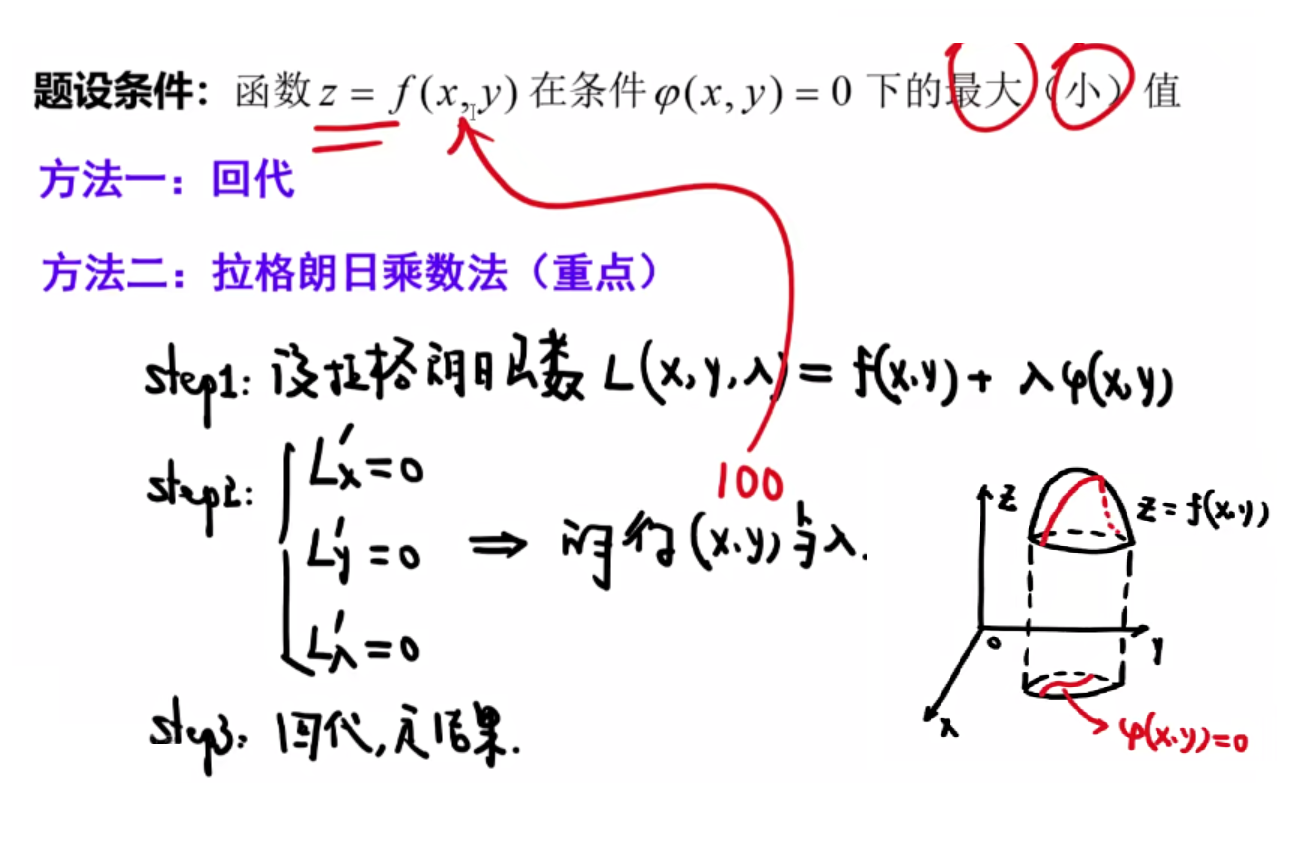 题设条件：函数 z = f(x, y) 在条件 φ(x, y) = 0 下的最大（小）值
方法一：回代
方法二：拉格朗日乘数法（重点）
step1: 设拉格朗日函数 L(x, y, λ) = f(x.y) + λφ(x,y)
step2: L'x = 0
L'y = 0 ⇒ 解得 (x.y) 与 λ.
L'λ = 0
100
step3: 回代, 定结果.
z
z = f(x.y)
o
y
x
φ(x.y)=0